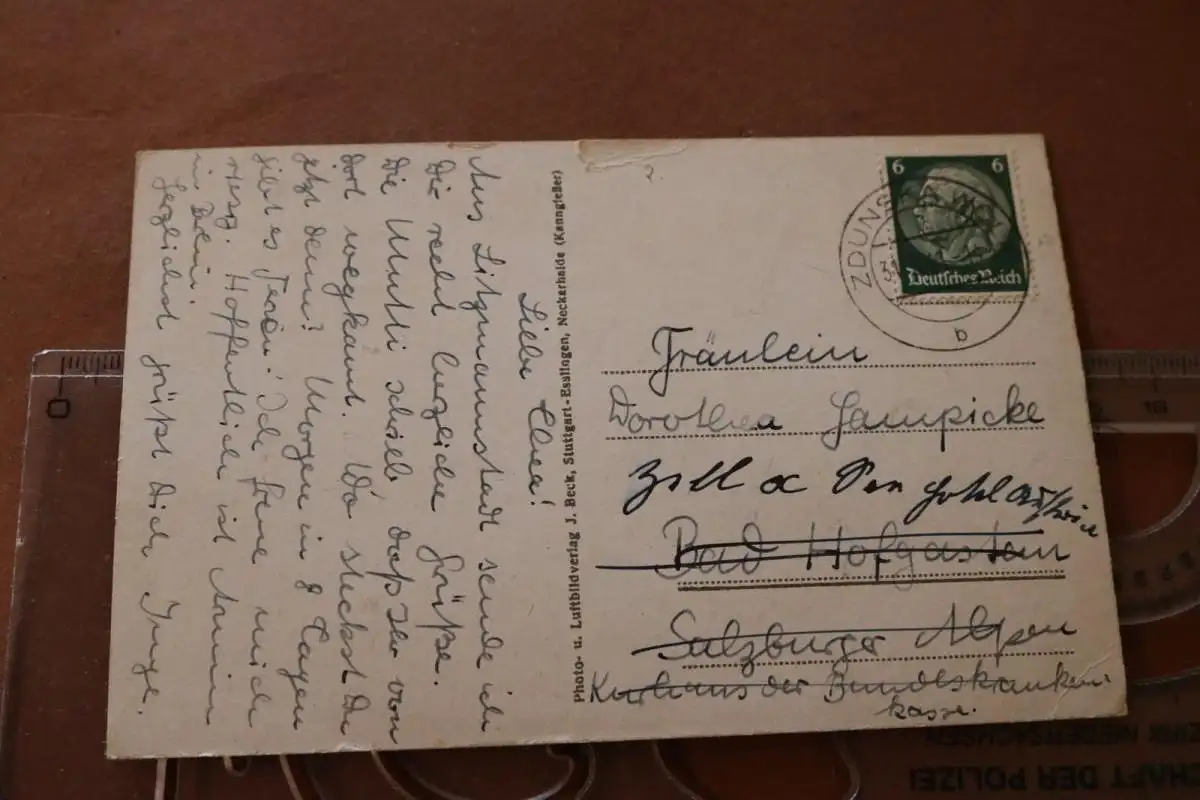 Liebe Thea!
Aus Litzmannstadt sende ich
Dir recht herzliche Grüße.
Die Mutti schieb daß Ihr von
dort wegkamt. Wo steckst Du
jetzt denn? Morgen in 8 Tagen
gibt es Ferien. Ich freue mich
riesig. Hoffentlich ist Armin
in
Herzlichst grüßt Dich Inge.
Photo- u. Luftbildverlag J. Beck, Stuttgart-Esslingen, Neckarhalde (Kanngießer)
6 6
Deutsches Reich
ZDUNSKA WOLA
b
Fräulein
Dorothea Lampicke
Zell
Bad Hofgastein
Salzburger Alpen
Kurhaus der Bundeskranken-
kasse.
0
SCHAFT DER POLIZEI
ZIRK NIEDERSACHSEN